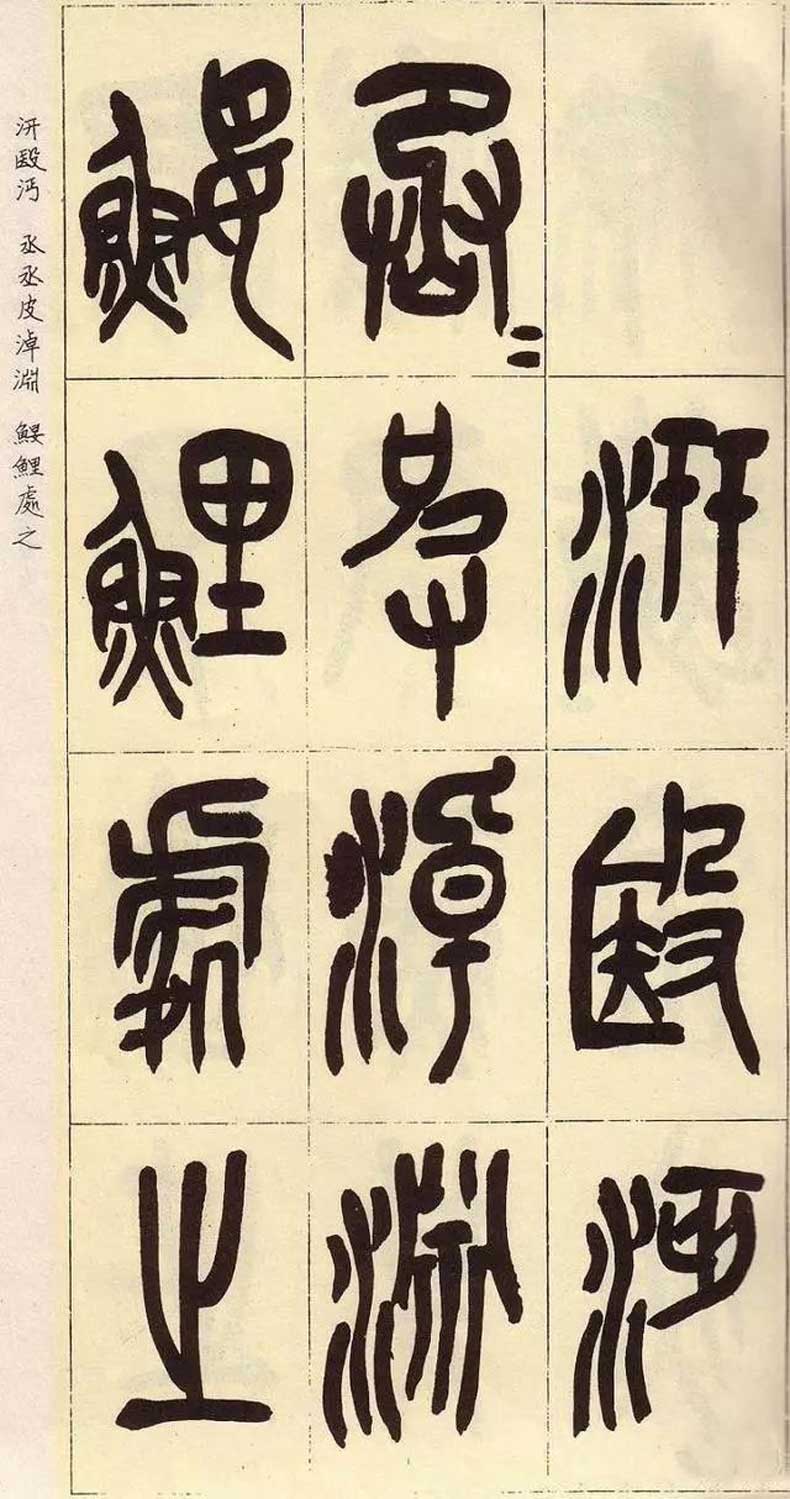 汧殹沔
丞＝皮淖淵
鰋鯉處之
汧殹沔　丞丞皮淖淵　鰋鯉處之